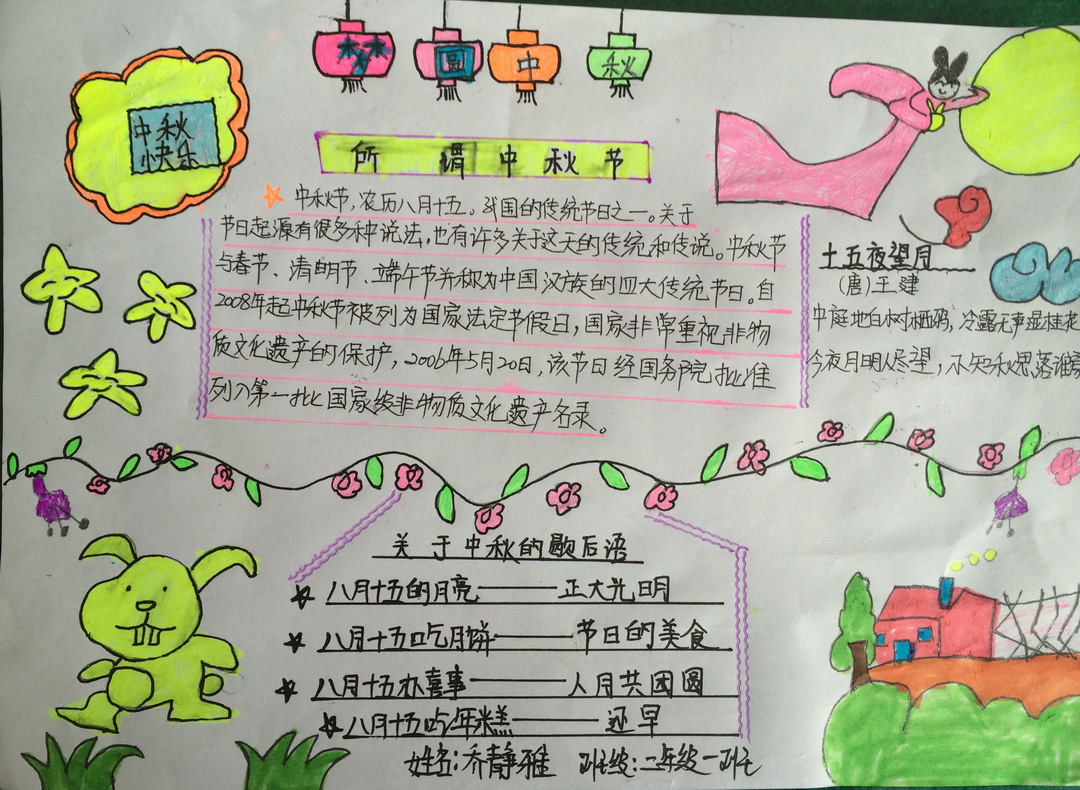 梦圆中秋
中秋
快乐
所谓中秋节
中秋节,农历八月十五。我国的传统节日之一。关于
节日起源有很多种说法,也有许多关于这天的传统和传说。中秋节
与春节、清明节、端午节并称为中国汉族的四大传统节日。自
2008年起中秋节被列为国家法定节假日,国家非常重视非物
质文化遗产的保护,2006年5月20日,该节日经国务院批准
列入第一批国家级非物质文化遗产名录。
十五夜望月
(唐)王建
中庭地白树栖鸦,冷露无声湿桂花
今夜月明人尽望,不知秋思落谁家
关于中秋的歇后语
八月十五的月亮——正大光明
八月十五吃月饼——节日的美食
八月十五办喜事——人月共团圆
八月十五吃年糕——还早
姓名:乔静雅 班级:二年级一班